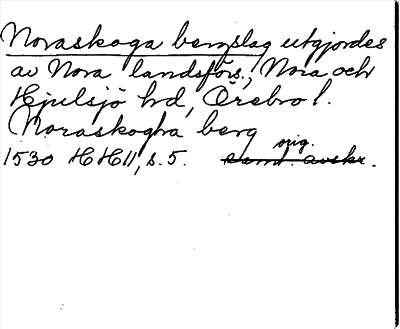 Noraskoga bergslag utgjordes
av Nora landsförs., Nora och
Hjulsjö hd, Örebro l.
Noraskogha berg
1530 HH11, s. 5. samt. avskr. orig.